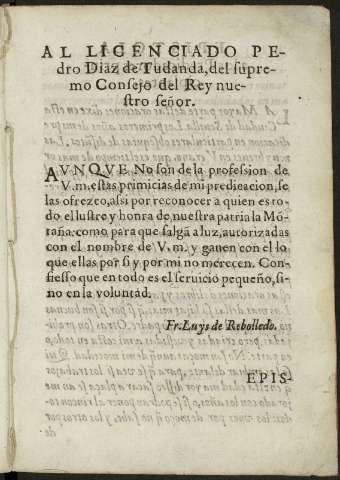 AL LICENCIADO PE-
dro Diaz de Tudanda, del supre-
mo Consejo del Rey nue-
stro señor.
AVNQVE No son de la profession de
V.m. estas primicias de mi predicacion, se
las ofrezco, assi por reconocer a quien es to-
do el lustre y honra de nuestra patria la Mõ-
taña. como para que salgã a luz, autorizadas
con el nombre de V.m. y ganen con el lo
que ellas por si y por mi no merecen. Con-
fiesso que en todo es el seruicio pequeño, si-
no en la voluntad.
Fr. Luys de Rebolledo.
EPIS-